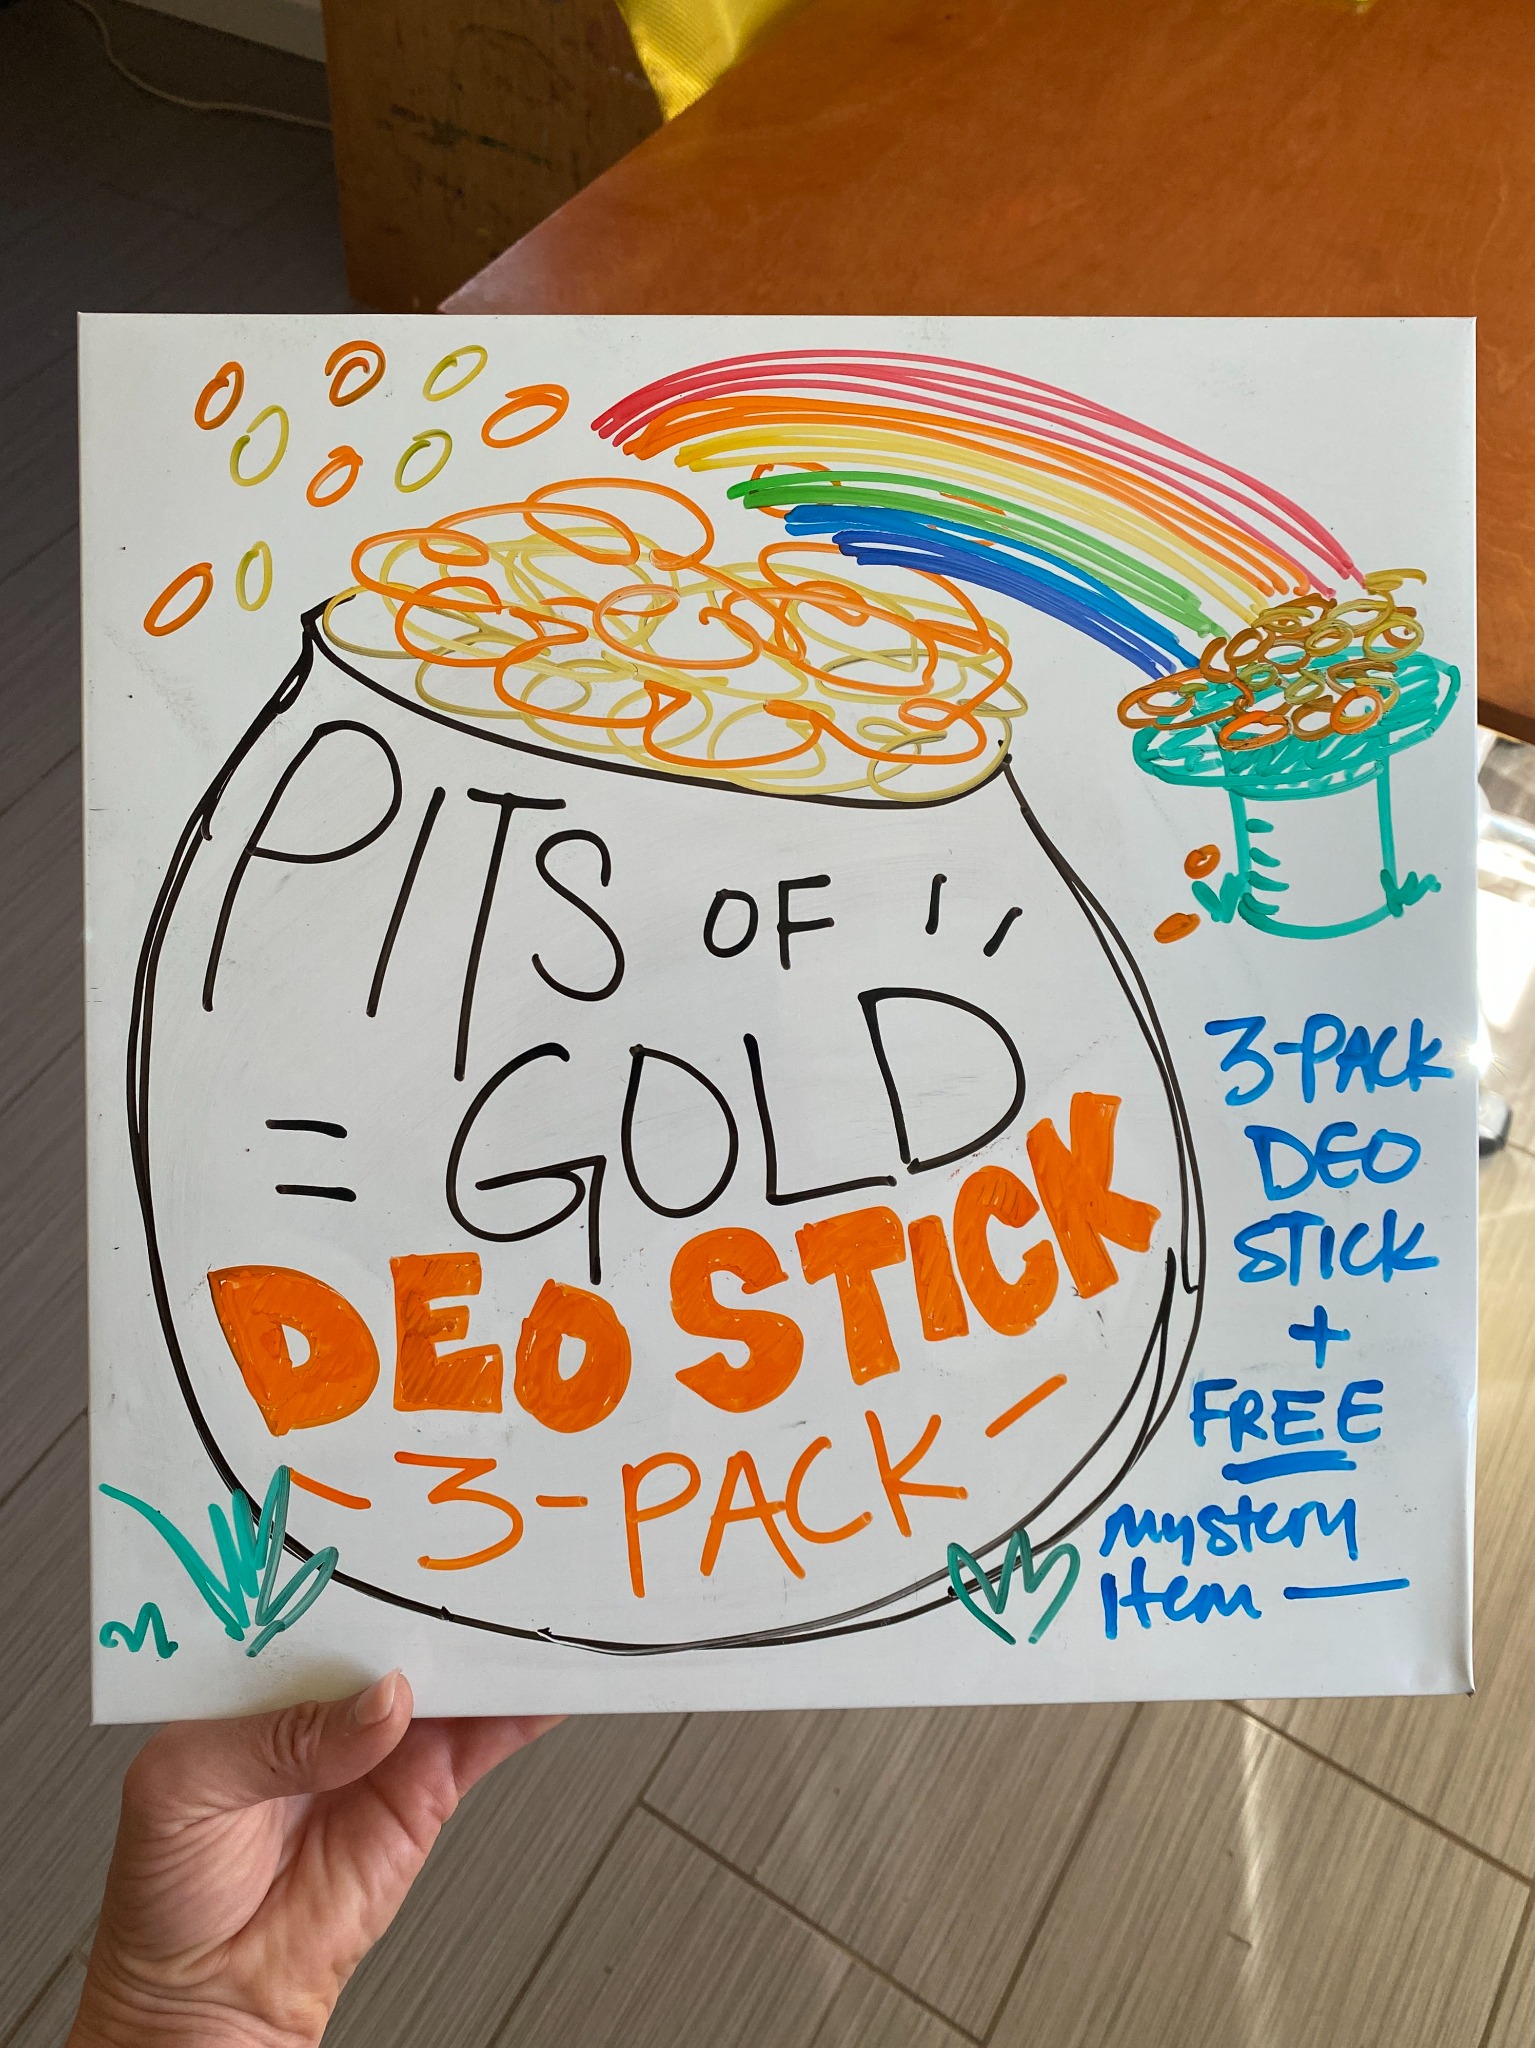 PITS OF
= GOLD
DEO STICK
- 3-PACK -
3-PACK
DEO
STICK
+
FREE
mystery
Item —